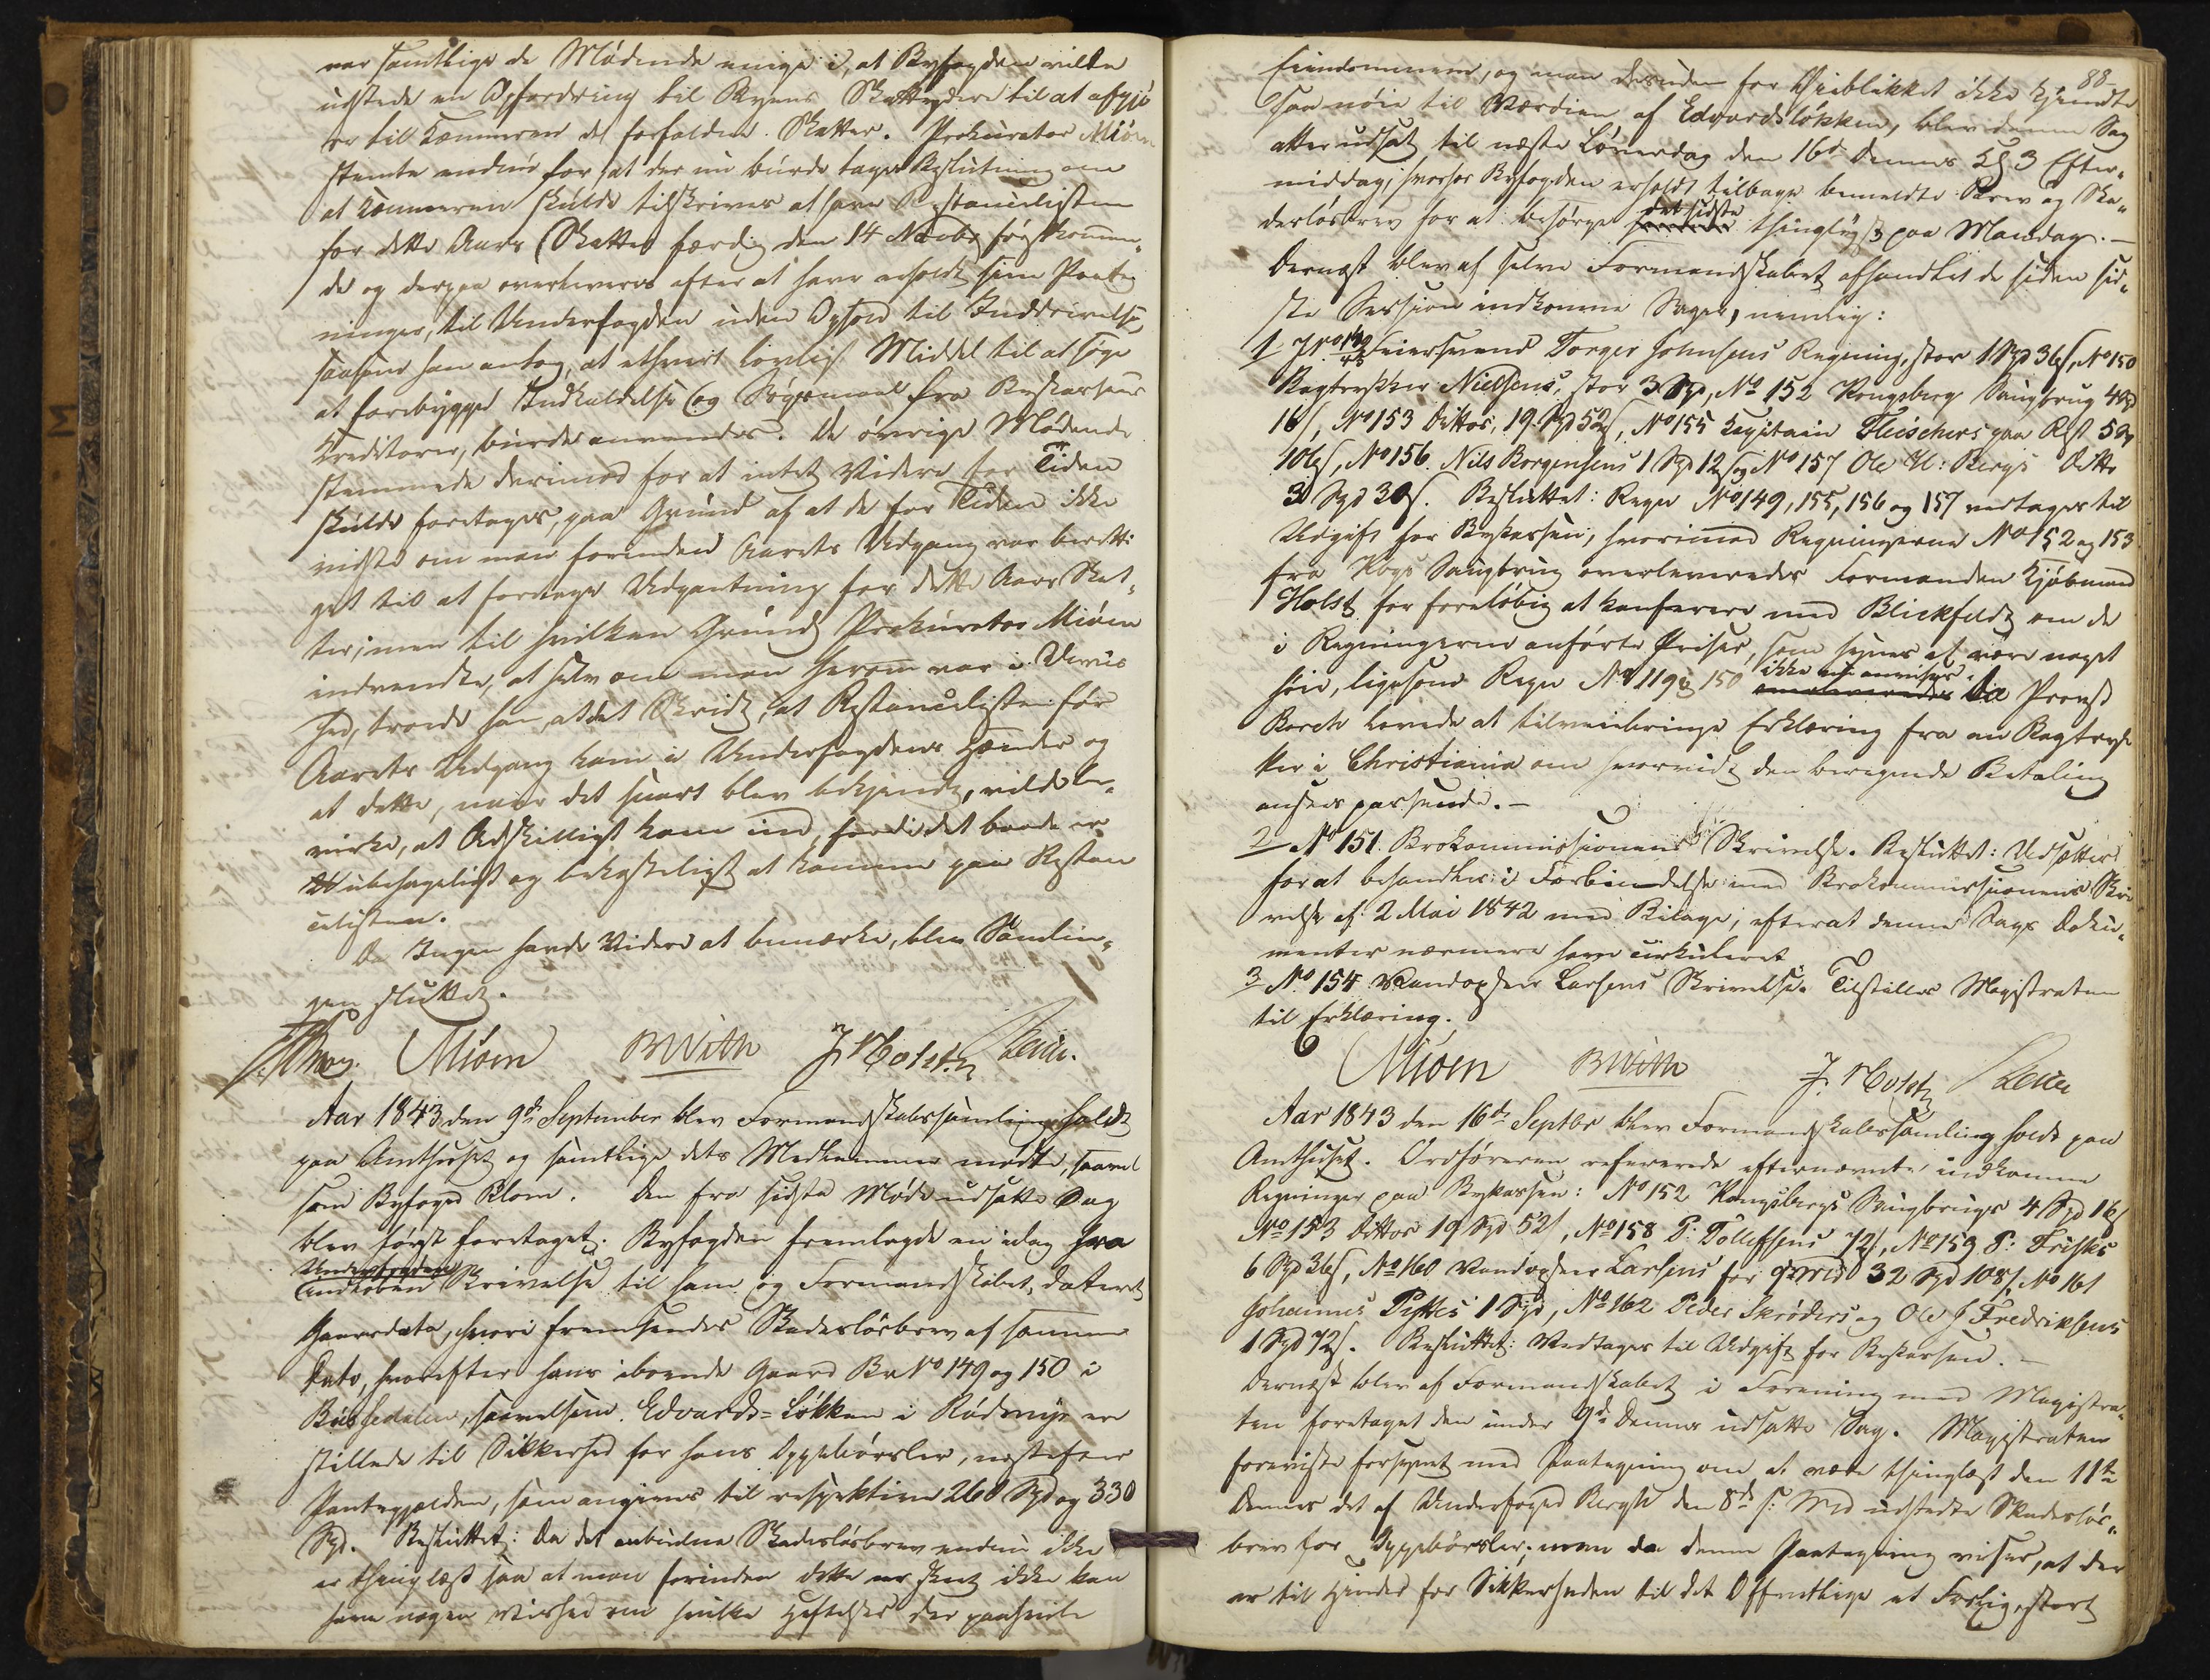 var samtlige de Mødende enige i, at Byfogden vilde
udstede en Opfordring til Byens Skatteydere til at afgjø
re til Kæmneren de forfaldne Skatter. Prokurator Miøen
stemte endnu for, at der nu burde tages Beslutning om
at Kæmneren skulde tilskrives at have Restancelisten
for dette Aars Skatter færdig den 14 Novbr førstkommen-
de og derpaa overleveres efter at have erholdt sine Paateg
ninger, til Underfogden uden Ophold til Inddrivelse,
saasom han antog, at ethvert lovligt Middel til at søge
at forebygge Indkaldelse og Søgsmaal fra Bykassens
Kreditorer, burde anvendes. De øvrige Mødende
stemmede derimod for at intet Videre for Tiden
skulde foretages, paa Grund af at de for Tiden ikke
vidste om man forinden Aarets Udgang var beretti
get til at foretage Udpantning for dette Aars Skat-
ter; men til hvilken Grund Prokurator Miøen
indvendte, at selv om man herom var i Uvis
hed, troede han, at det Skridt, at Restancelisten før
Aarets Udgang kom i Underfogdens Hænder og
at dette, naar det snart blev bekjendt, vilde be-
virke, at Adskilligt kom ind, fordi det baade er
ubehageligt og bekosteligt at komme paa Restan
celisten.
Da Ingen havde Videre at bemærke, blev Samlin-
gen sluttet.
Miøen BWith J. Holst
Aar 1843 den 9de September blev Formandskabssamling holdt
paa Amthuset og samtlige dets Medlemmer mødte, saavel
som Byfoged Blom. Den fra sidste Møde udsatte Sag
blev først foretaget. Byfogden fremlagde en idag fra
Underfogden
indløben Skrivelse til ham og Formandskabet, dateret
Gaarsdato, hvori fremsendes Skadesløsbrev af samme
Dato, hvorefter hans iboende Gaard Br No 149 og 150 i
saavelsom Edvards-Løkken i er
stillede til Sikkerhed for hans Oppebørsler, næst efter
Pantegjælden, som angives til respektive 260 Spd og 330
Spd. Besluttet: Da det anbudne Skadesløsbrev endnu ikke
er thinglæst saa at man forinden dette er skeet ikke kan
have nogen Vished om hvilke Heftelser der paahvile
88
Eiendommene, og man desuden for Øieblikket ikke kjendte
saa nøie til Værdien af Edvardsløkken, blev denne Sag
atter udsat til næste Løverdag den 16de dennes Kl 3 Efter-
middag; hvorfor Byfogden erholdt tilbage bemeldte Brev og Ska-
det sidste
desløsbrev for at besørge thinglyst paa Mandag.—
Dernæst blev af selve Formandskabet afhandlet de siden sid-
ste Session indkomne Sager, nemlig:
1 No 149 Feiersvend Torger Johnsens Regning, stor 1 Spd 36 s, No 150
Bogtrykker Nielsens, stor 3 Spd, No 152 Kongsberg Saugbrug 4 Spd
16 s, No 153 Dittos, 19 Spd 52 s, No 155 Kapitain Fleischers paa Rest 5 Spd
106 s, No 156. Nils Borgensens 1 Spd 12 s og No 157 Ole H: Bergs Ditto
3 Spd 30 s. Besluttet: Regn No 149, 155, 156 og 157 vedtages til
Udgift for Bykassen, hvorimod Regningerne No 152 og 153
fra Kbgs Saugbrug overleveredes Formanden Kjøbmand
Holst for foreløbig at konferere med Blickfeldt om de
i Regningerne anførte Priser, som synes at være noget
ikke anvises
høie, ligesom Regn No 119 og 150 Da Provst
Borch lovede at tilveiebringe Erklæring fra en Bogtryk
ker i Christiania om hvorvidt den beregnede Betaling
ansees passende.—
2 No 151. Brokommissionens Skrivelse. Besluttet: Udsættes
for at behandles i Forbindelse med Brokommissionens Skri
velse af 2 Mai 1842 med Bilage, efterat denne Sags Doku-
menter nærmere have cirkuleret
3 No 154 Vandopseer Larsens Skrivelse. Tilstilles Magistraten
til Erklæring.
Miøen BWith J. Holst
Aar 1843 den 16de Septbr blev Formandskabssamling holdt paa
Amthuset. Ordføreren refererede efternævnte indkomne
Regninger paa Bykassen: No 152 Kongsbergs Saugbrugs 4 Spd 16 s
No 153 Dittos 19 Spd 52 s, No 158 P: Tollefsens 72 s, No 159 P: Friskes
6 Spd 36 s, No 160 Vandopseer Larsens for 32 Spd 108 s, No 161
Johannes Pyttes 1 Spd, No 162 Peder Skrøders og Ole J Fredriksens
1 Spd 72 s. Besluttet: Vedtages til Udgift for Bykassen.—
Dernæst blev af Formandskabet i Forening med Magistra-
ten foretaget den under 9de dennes udsatte Sag. Magistraten
foreviste forsynet med Paategning om at være thinglæst den 11te
dennes det af Underfoged Bergh den 8de s: Md udstedte Skadesløs-
brev for Oppebørsler; men da denne Paategning viser, at der
er til Hinder for Sikkerheden til det Offentlige et Forlig, stort